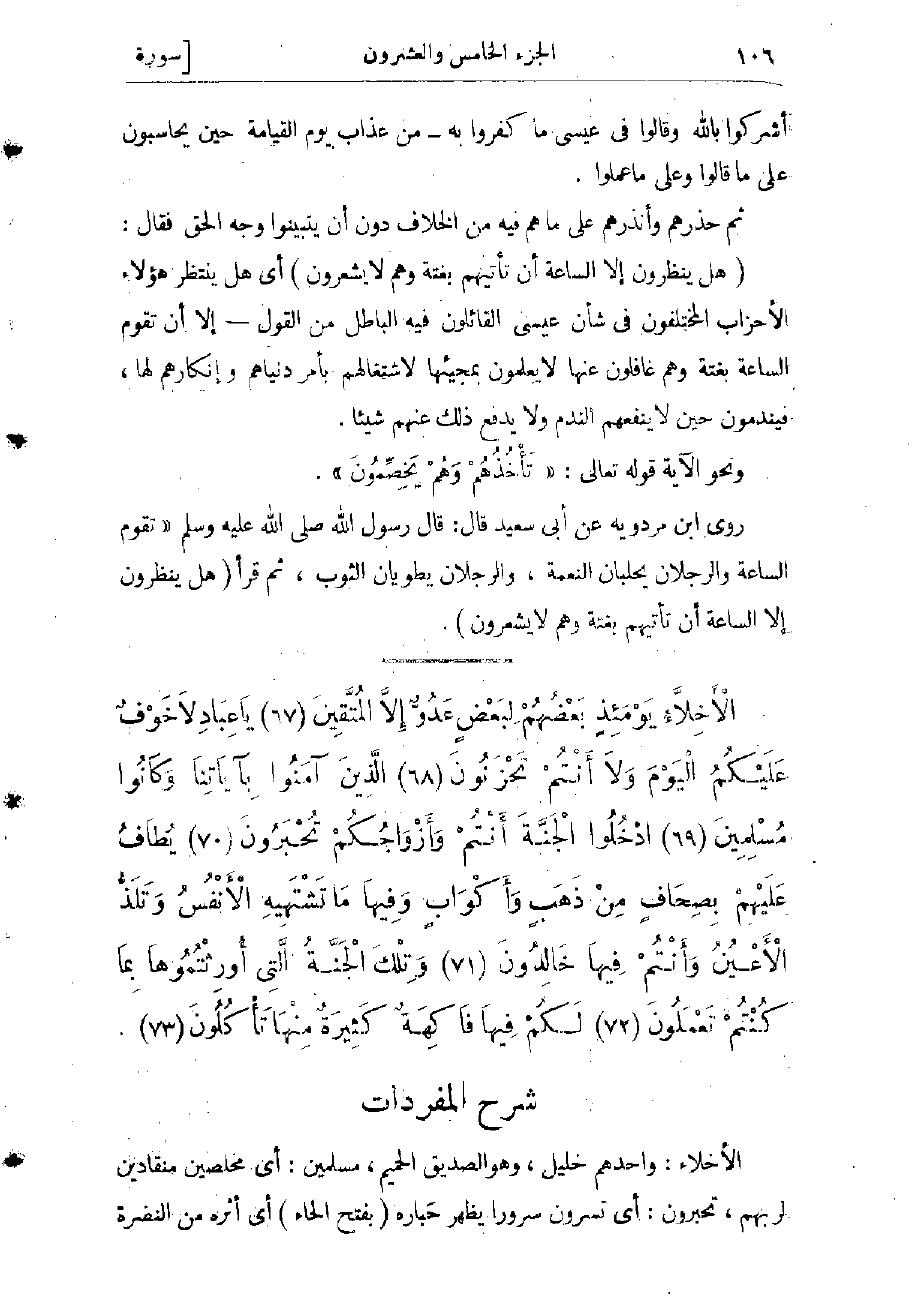 ١٠٦ الجزء الخامس والعشرون [سورة
أشركوا بالله وقالوا فى عيسى ما كفروا به ـ من عذاب يوم القيامة حين يحاسبون
على ما قالوا وعلى ماعملوا .
ثم حذرهم وأنذرهم على ماهم فيه من الخلاف دون أن يتبينوا وجه الحق فقال :
( هل ينظرون إلا الساعة أن تأتيهم بغتة وهم لايشعرون ) أى هل ينتظر هؤلاء
الأحزاب المختلفون فى شأن عيسى القائلون فيه الباطل من القول — إلا أن تقوم
الساعة بغتة وهم غافلون عنها لايعلمون بمجيئها لاشتغالهم بأمر دنياهم وإنكارهم لها ،
فيندمون حين لاينفعهم الندم ولا يدفع ذلك عنهم شيئا .
ونحو الآية قوله تعالى : « تَأْخُذُهُمْ وَهُمْ يَخِصِّمُونَ » .
روى ابن مردويه عن أبى سعيد قال: قال رسول الله صلى الله عليه وسلم « تقوم
الساعة والرجلان يحلبان النعمة ، والرجلان يطويان الثوب ، ثم قرأ ( هل ينظرون
إلا الساعة أن تأتيهم بغتة وهم لايشعرون ) .
الْأَخِلاَّءُ يَوْمَئِذٍ بَعْضُهُمْ لِبَعْضٍ عَدُوٌّ إِلاَّ الْمُتَّقِينَ (٦٧) يَاعِبَادِ لاَخَوْفٌ
عَلَيْكُمُ الْيَوْمَ وَلاَ أَنْتُمْ تَحْزَنُونَ (٦٨) الَّذِينَ آمَنُوا بِآيَاتِنَا وَكَانُوا
مُسْلِمِينَ (٦٩) ادْخُلُوا الْجَنَّةَ أَنْتُمْ وَأَزْوَاجُكُمْ تُحْبَرُونَ (٧٠) يُطَافُ
عَلَيْهِمْ بِصِحَافٍ مِنْ ذَهَبٍ وَأَكْوَابٍ وَفِيهَا مَاتَشْتَهِيهِ الْأَنْفُسُ وَتَلَذُّ
الْأَعْيُنُ وَأَنْتُمْ فِيهَا خَالِدُونَ (٧١) وَتِلْكَ الْجَنَّةُ الَّتِي أُورِثْتُمُوهَا بِمَا
كُنْتُمْ تَعْمَلُونَ (٧٢) لَكُمْ فِيهَا فَاكِهَةٌ كَثِيرَةٌ مِنْهَا تَأْكُلُونَ (٧٣) .
شرح المفردات
الأخلاء : واحدهم خليل ، وهوالصديق الحميم ، مسلمين : أى مخلصين منقادين
لربهم ، تحبرون : أى تسرون سرورا يظهر حَباره ( بفتح الحاء ) أى أثره من النضرة